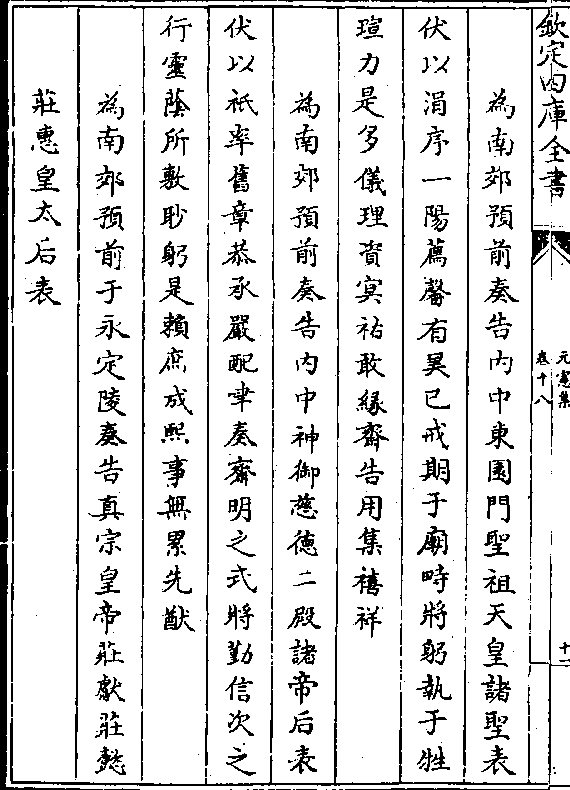 欽定四庫全書
元憲集
卷十八
十一
為南郊預前奏告內中東園門聖祖天皇諸聖表
伏以涓序一陽薦馨有昊已戒期于廟時將躬執于牲
瑄力是多儀理資冥祐敢緣齋告用集禧祥
為南郊預前奏告內中神御慈德二殿諸帝后表
伏以祇率舊章恭承嚴配聿奏齋明之式將勤信次之
行靈蔭所敷眇躬是賴庶成熙事無累先猷
為南郊預前于永定陵奏告真宗皇帝莊獻莊懿
莊惠皇太后表